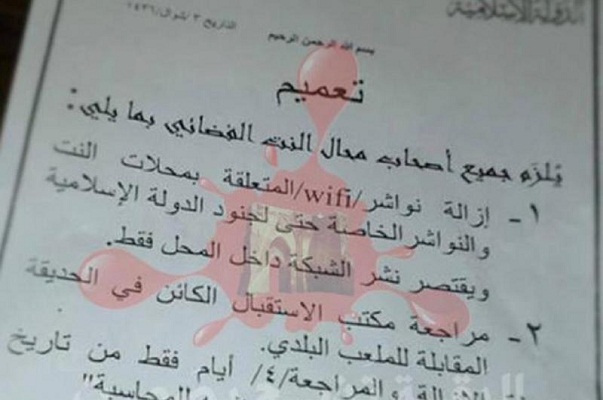 الدولة الإسلامية
التاريخ ٣/شوال/١٤٣٦
بسم الله الرحمن الرحيم
تعميم
يُلزم جميع أصحاب محال النت الفضائي بما يلي:
١- إزالة نواشر/wifi/المتعلقة بمحلات النت
والنواشر الخاصة حتى لجنود الدولة الإسلامية
ويقتصر نشر الشبكة داخل المحل فقط.
٢- مراجعة مكتب الاستقبال الكائن في الحديقة
المقابلة للملعب البلدي.
والمراجعة/٤/ أيام فقط من تاريخ
المحاسبة"